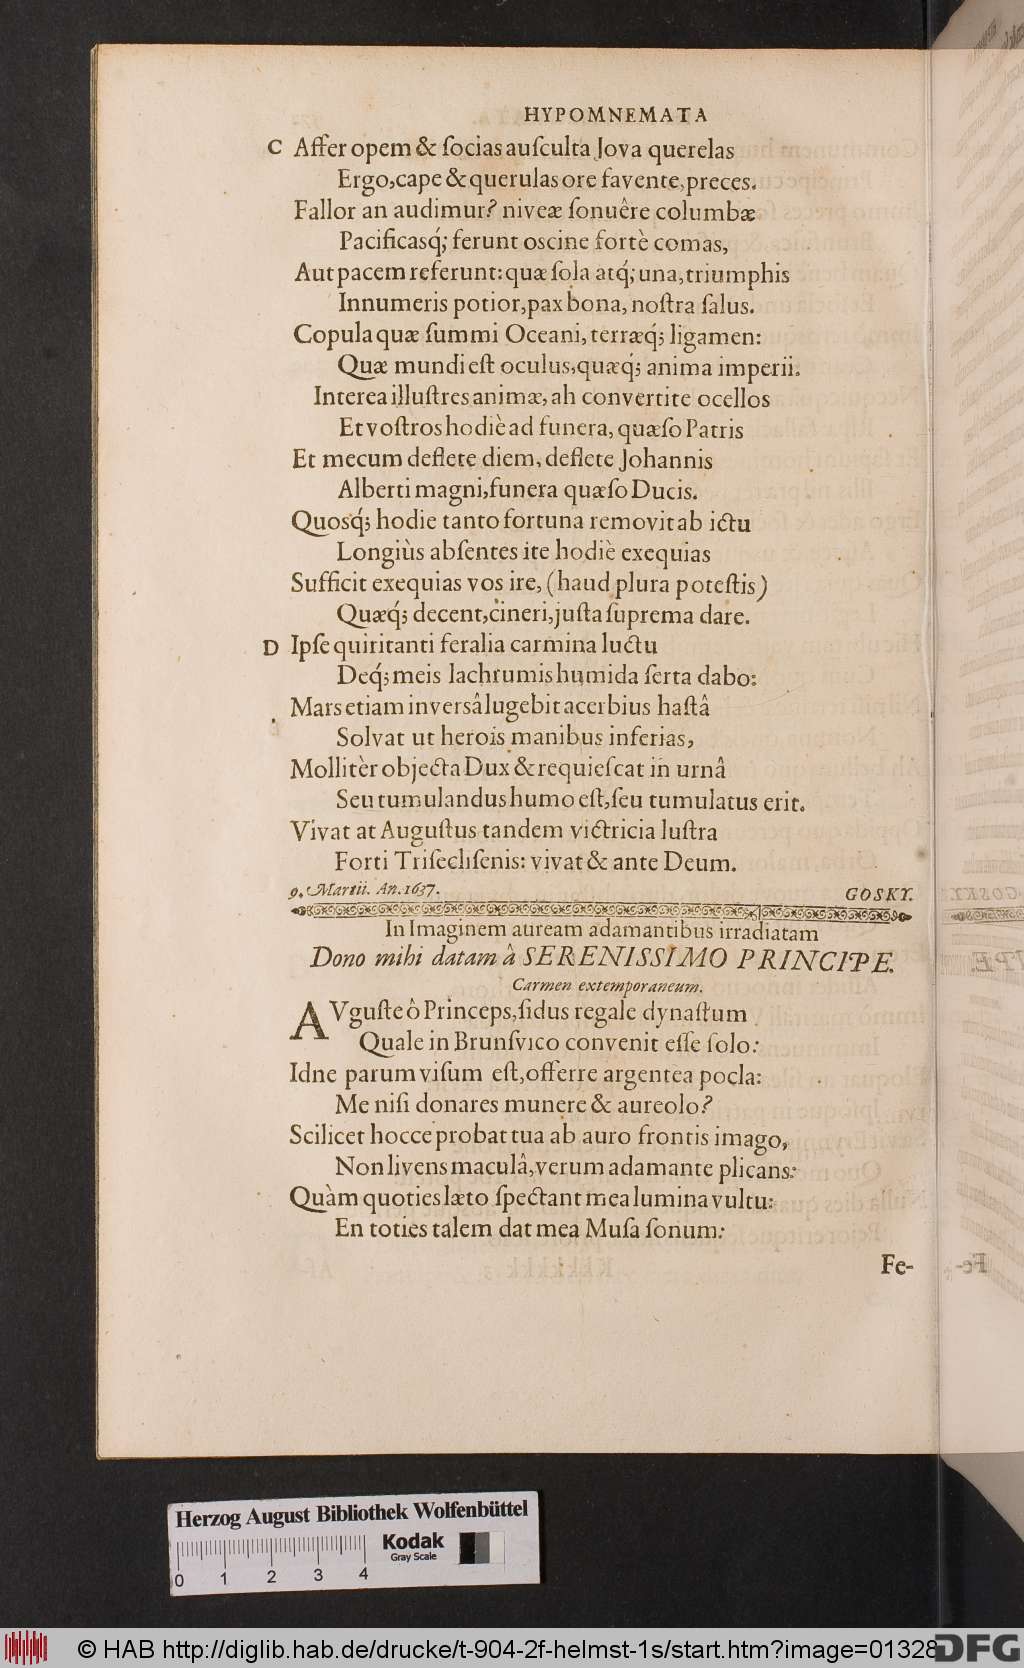 HYPOMNEMATA
C Affer opem & ſocias auſculta Jova querelas
Ergo, cape & querulas ore favente, preces.
Fallor an audimur? niveæ ſonuêre columbæ
Pacificasq́; ferunt oscine fortè comas,
Aut pacem referunt: quæ ſola atq́; una, triumphis
Innumeris potior, pax bona, noſtra ſalus.
Copula quæ ſummi Oceani, terræq́; ligamen:
Quæ mundi eſt oculus, quæq́; anima imperii.
Interea illuſtres animæ, ah convertite ocellos
Et voſtros hodiè ad funera, quæſo Patris
Et mecum deflete diem, deflete Johannis
Alberti magni, funera quæſo Ducis.
Quosq́; hodie tanto fortuna removit ab ictu
Longiùs abſentes ite hodiè exequias
Sufficit exequias vos ire, (haud plura poteſtis)
Quæq́; decent, cineri, juſta ſuprema dare.
D Ipſe quiritanti feralia carmina luctu
Deq́; meis lachrumis humida ſerta dabo:
Mars etiam inversâ lugebit acerbius haſtâ
Solvat ut herois manibus inferias,
Mollitèr objecta Dux & requieſcat in urnâ
Seu tumulandus humo eſt, ſeu tumulatus erit.
Vivat at Auguſtus tandem victricia luſtra
Forti Triſecliſenis: vivat & ante Deum.
9. Martii. An. 1637. GOSKY.
In Imaginem auream adamantibus irradiatam
Dono mihi datam â SERENISSIMO PRINCIPE.
Carmen extemporaneum.
AVguſte ô Princeps, ſidus regale dynaſtum
Quale in Brunſvico convenit eſſe ſolo:
Idne parum viſum eſt, offerre argentea pocla:
Me niſi donares munere & aureolo?
Scilicet hocce probat tua ab auro frontis imago,
Non livens maculâ, verum adamante plicans:
Quàm quoties læto ſpectant mea lumina vultu:
En toties talem dat mea Muſa ſonum:
Fe-
Herzog August Bibliothek Wolfenbüttel
Kodak
Gray Scale
0 1 2 3 4
© HAB http://diglib.hab.de/drucke/t-904-2f-helmst-1s/start.htm?image=01328
DFG